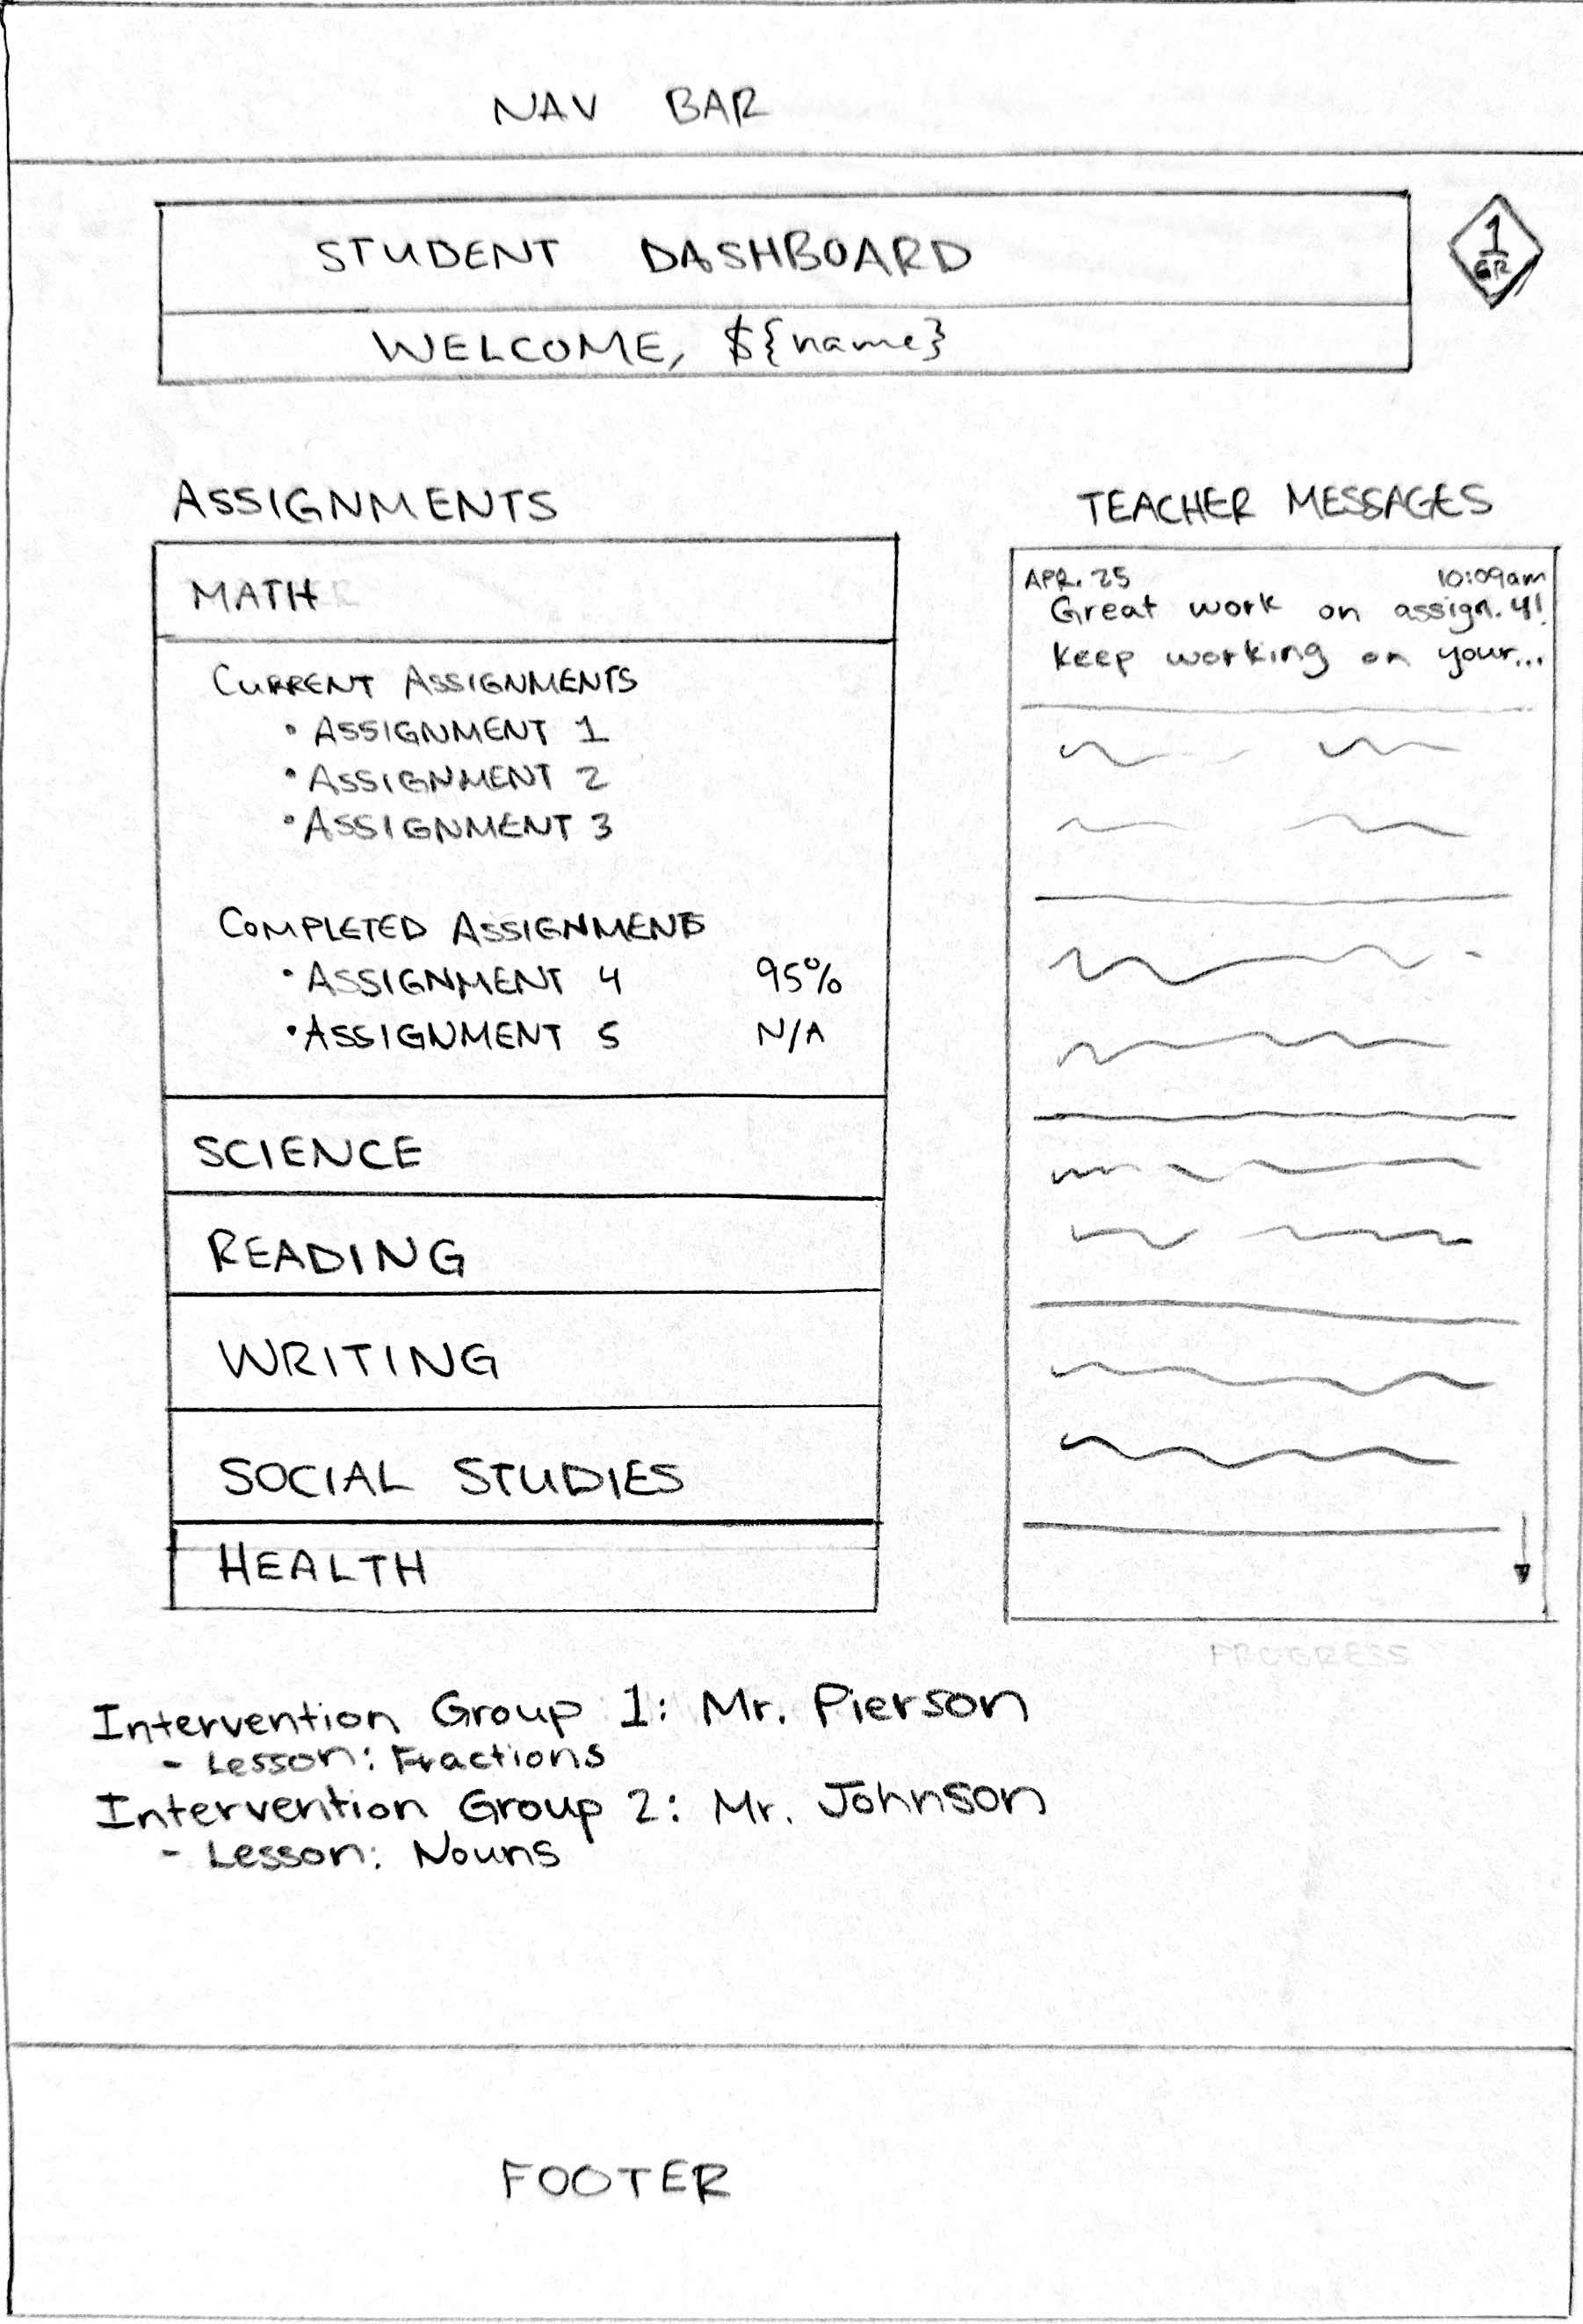 NAV BAR
STUDENT DASHBOARD
1
GR
WELCOME, ${name}
ASSIGNMENTS
MATH
CURRENT ASSIGNMENTS
• ASSIGNMENT 1
• ASSIGNMENT 2
• ASSIGNMENT 3
COMPLETED ASSIGNMENTS
• ASSIGNMENT 4 95%
• ASSIGNMENT 5 N/A
SCIENCE
READING
WRITING
SOCIAL STUDIES
HEALTH
TEACHER MESSAGES
APR. 25 10:09am
Great work on assign. 4!
Keep working on your...
PROGRESS
Intervention Group 1: Mr. Pierson
- Lesson: Fractions
Intervention Group 2: Mr. Johnson
- Lesson: Nouns
FOOTER